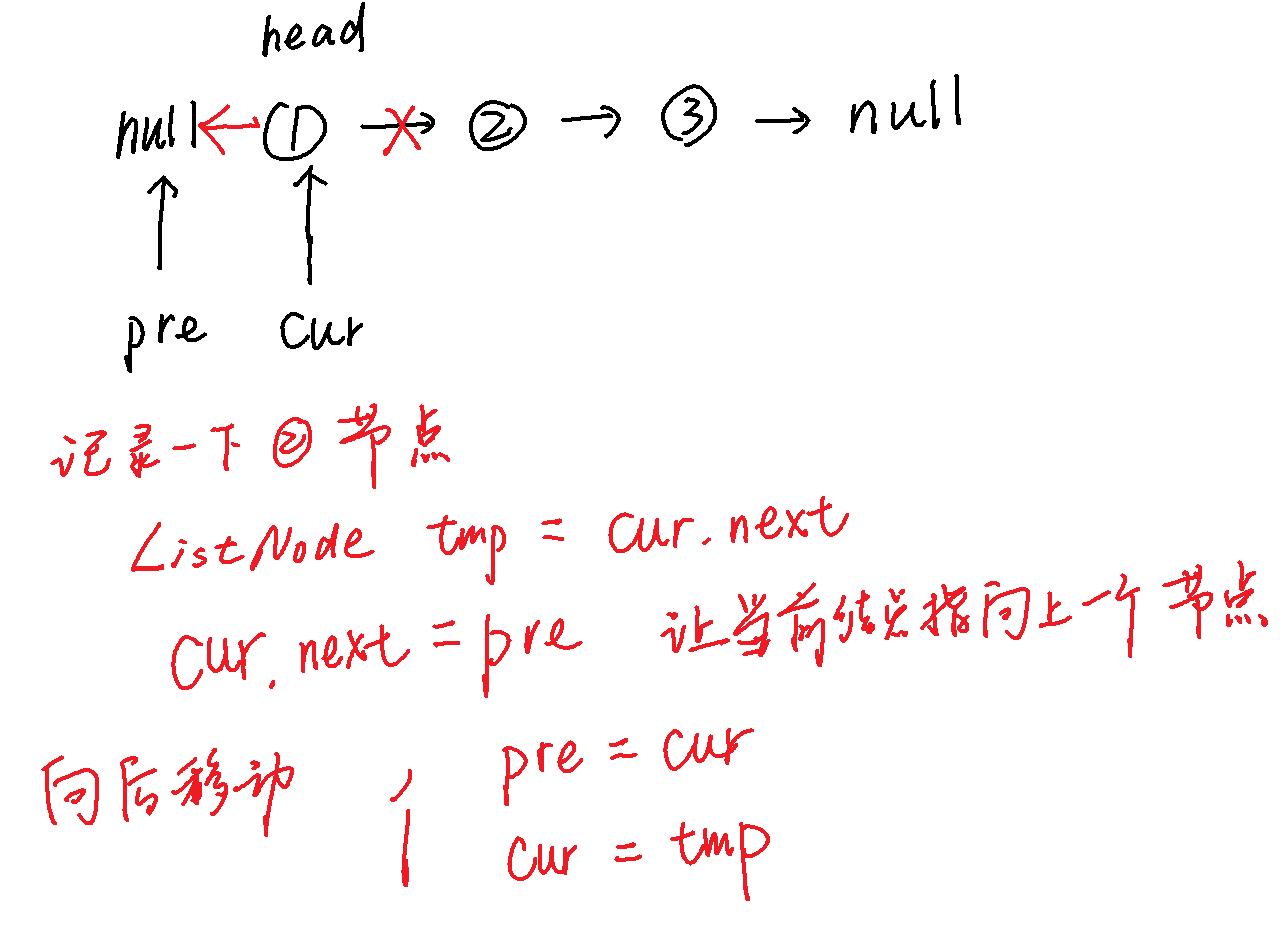 head
null ← ① → ② → ③ → null
pre cur
记录一下 ② 节点
ListNode tmp = cur.next
cur.next = pre 让当前结点指向上一个节点
向后移动 pre = cur
cur = tmp